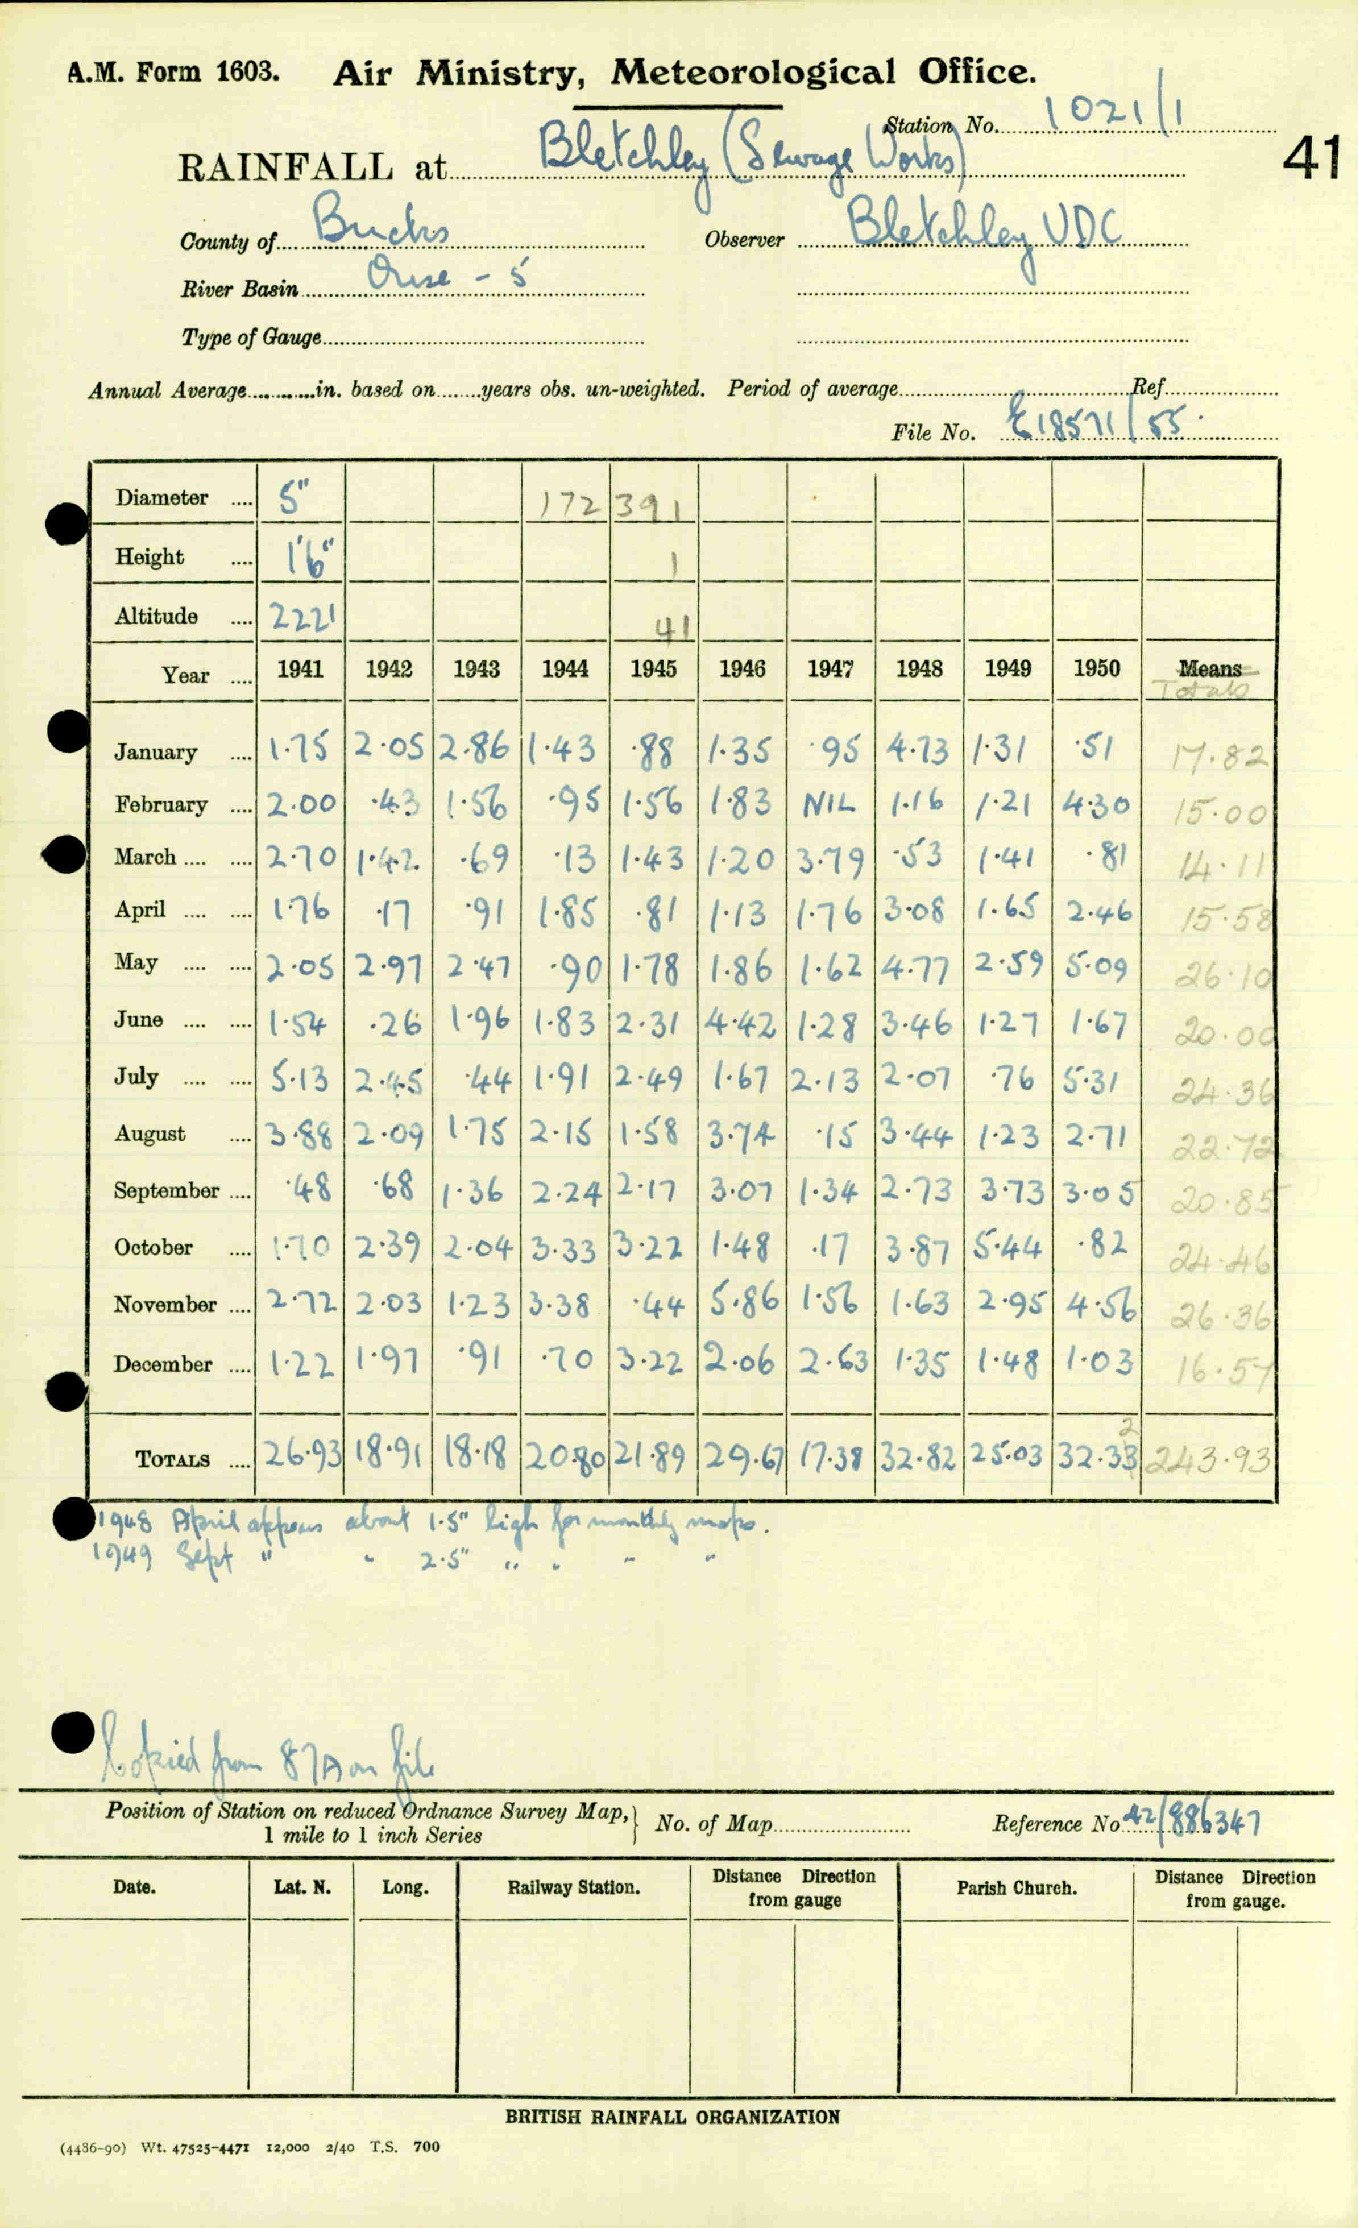 A.M. Form 1603. Air Ministry, Meteorological Office.
Station No. 1021/1
RAINFALL at Bletchley (Sewage Works)
41
County of Bucks Observer Bletchley UDC
River Basin Ouse - 5
Type of Gauge
Annual Average in. based on years obs. un-weighted. Period of average Ref
File No. E18571/55
Diameter 5" 172 391
Height 1'6" 1
Altitude 222' 41
Year 1941 1942 1943 1944 1945 1946 1947 1948 1949 1950 Means
Totals
January 1.75 2.05 2.86 1.43 .88 1.35 .95 4.73 1.31 .51 17.82
February 2.00 .43 1.56 .95 1.56 1.83 NIL 1.16 1.21 4.30 15.00
March 2.70 1.42 .69 .13 1.43 1.20 3.79 .53 1.41 .81 14.11
April 1.76 .17 .91 1.85 .81 1.13 1.76 3.08 1.65 2.46 15.58
May 2.05 2.97 2.47 .90 1.78 1.86 1.62 4.77 2.59 5.09 26.10
June 1.54 .26 1.96 1.83 2.31 4.42 1.28 3.46 1.27 1.67 20.00
July 5.13 2.45 .44 1.91 2.49 1.67 2.13 2.07 .76 5.31 24.36
August 3.88 2.09 1.75 2.15 1.58 3.74 .15 3.44 1.23 2.71 22.72
September .48 .68 1.36 2.24 2.17 3.07 1.34 2.73 3.73 3.05 20.85
October 1.70 2.39 2.04 3.33 3.22 1.48 .17 3.87 5.44 .82 24.46
November 2.72 2.03 1.23 3.38 .44 5.86 1.56 1.63 2.95 4.56 26.36
December 1.22 1.97 .91 .70 3.22 2.06 2.63 1.35 1.48 1.03 16.57
2
TOTALS 26.93 18.91 18.18 20.80 21.89 29.67 17.38 32.82 25.03 32.33 243.93
1948 April appears about 1.5" high for monthly maps.
1949 Sept " " 2.5" " " " "
Copied from 87A on file
Position of Station on reduced Ordnance Survey Map,
1 mile to 1 inch Series
No. of Map Reference No 42/886347
Date. Lat. N. Long. Railway Station. Distance from gauge Direction Parish Church. Distance from gauge. Direction
BRITISH RAINFALL ORGANIZATION
(4486-90) Wt. 47525-4471 12,000 2/40 T.S. 700